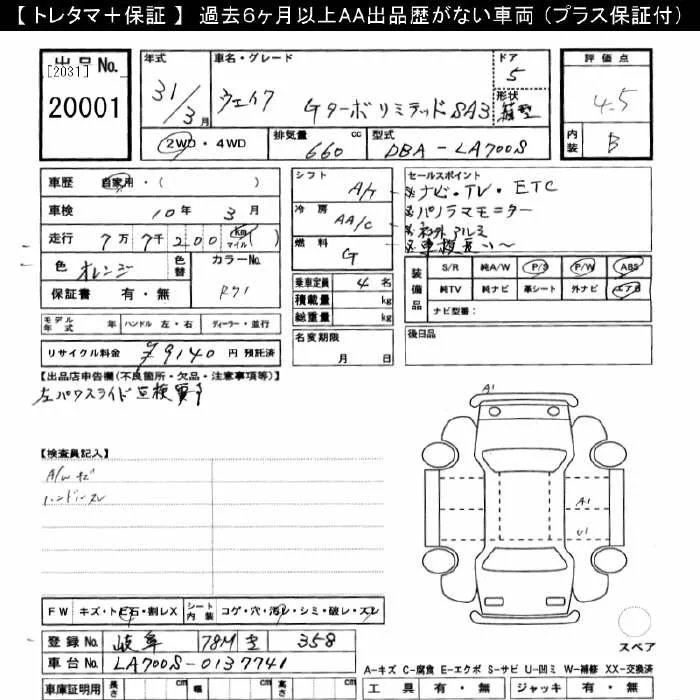 【 トレタマ＋保証 】 過去6ヶ月以上AA出品歴がない車両（プラス保証付）
出品No.
[2031]
20001
年式
31/3月
車名・グレード
ウェイク
Gターボリミテッド SA3
ドア
5
形状
箱型
評価点
4.5
内装
B
2WD・4WD
排気量
660 cc
型式
DBA-LA700S
車歴 自家用・( )
車検 10年 3月
走行 7万7千200 Km マイル ( )
色 オレンジ
色替
カラーNo.
R71
保証書 有・無
モデル年式 年 ハンドル 左・右 ディーラー・並行
リサイクル料金 ¥9140 円 預託済
シフト
A/T
冷房
AA/C
燃料
G
乗車定員 4 名
積載量 kg
総重量 kg
名変期限
月 日
セールスポイント
※ナビ・TV・ETC
※パノラマモニター
※社外アルミ
※車検長い〜
装備品
S/R 純A/W P/S P/W ABS
純TV 純ナビ 革シート 外ナビ エアB
ナビ型番：
後日品
【出品店申告欄(不良箇所・欠品・注意事項等)】
左パワスライド
【検査員記入】
A/Wキズ
ハンドルスレ
A1
A1
U1
FW キズ・トビ石・割レX
シート内装 コゲ・穴・汚レ・シミ・破レ・スレ
登録No. 岐阜 358
車台No. LA700S-0137741
車庫証明用 長さ cm 幅 cm 高さ cm
スペア
A-キズ C-腐食 E-エクボ S-サビ U-凹ミ W-補修 XX-交換済
工具 有・無 ジャッキ 有・無